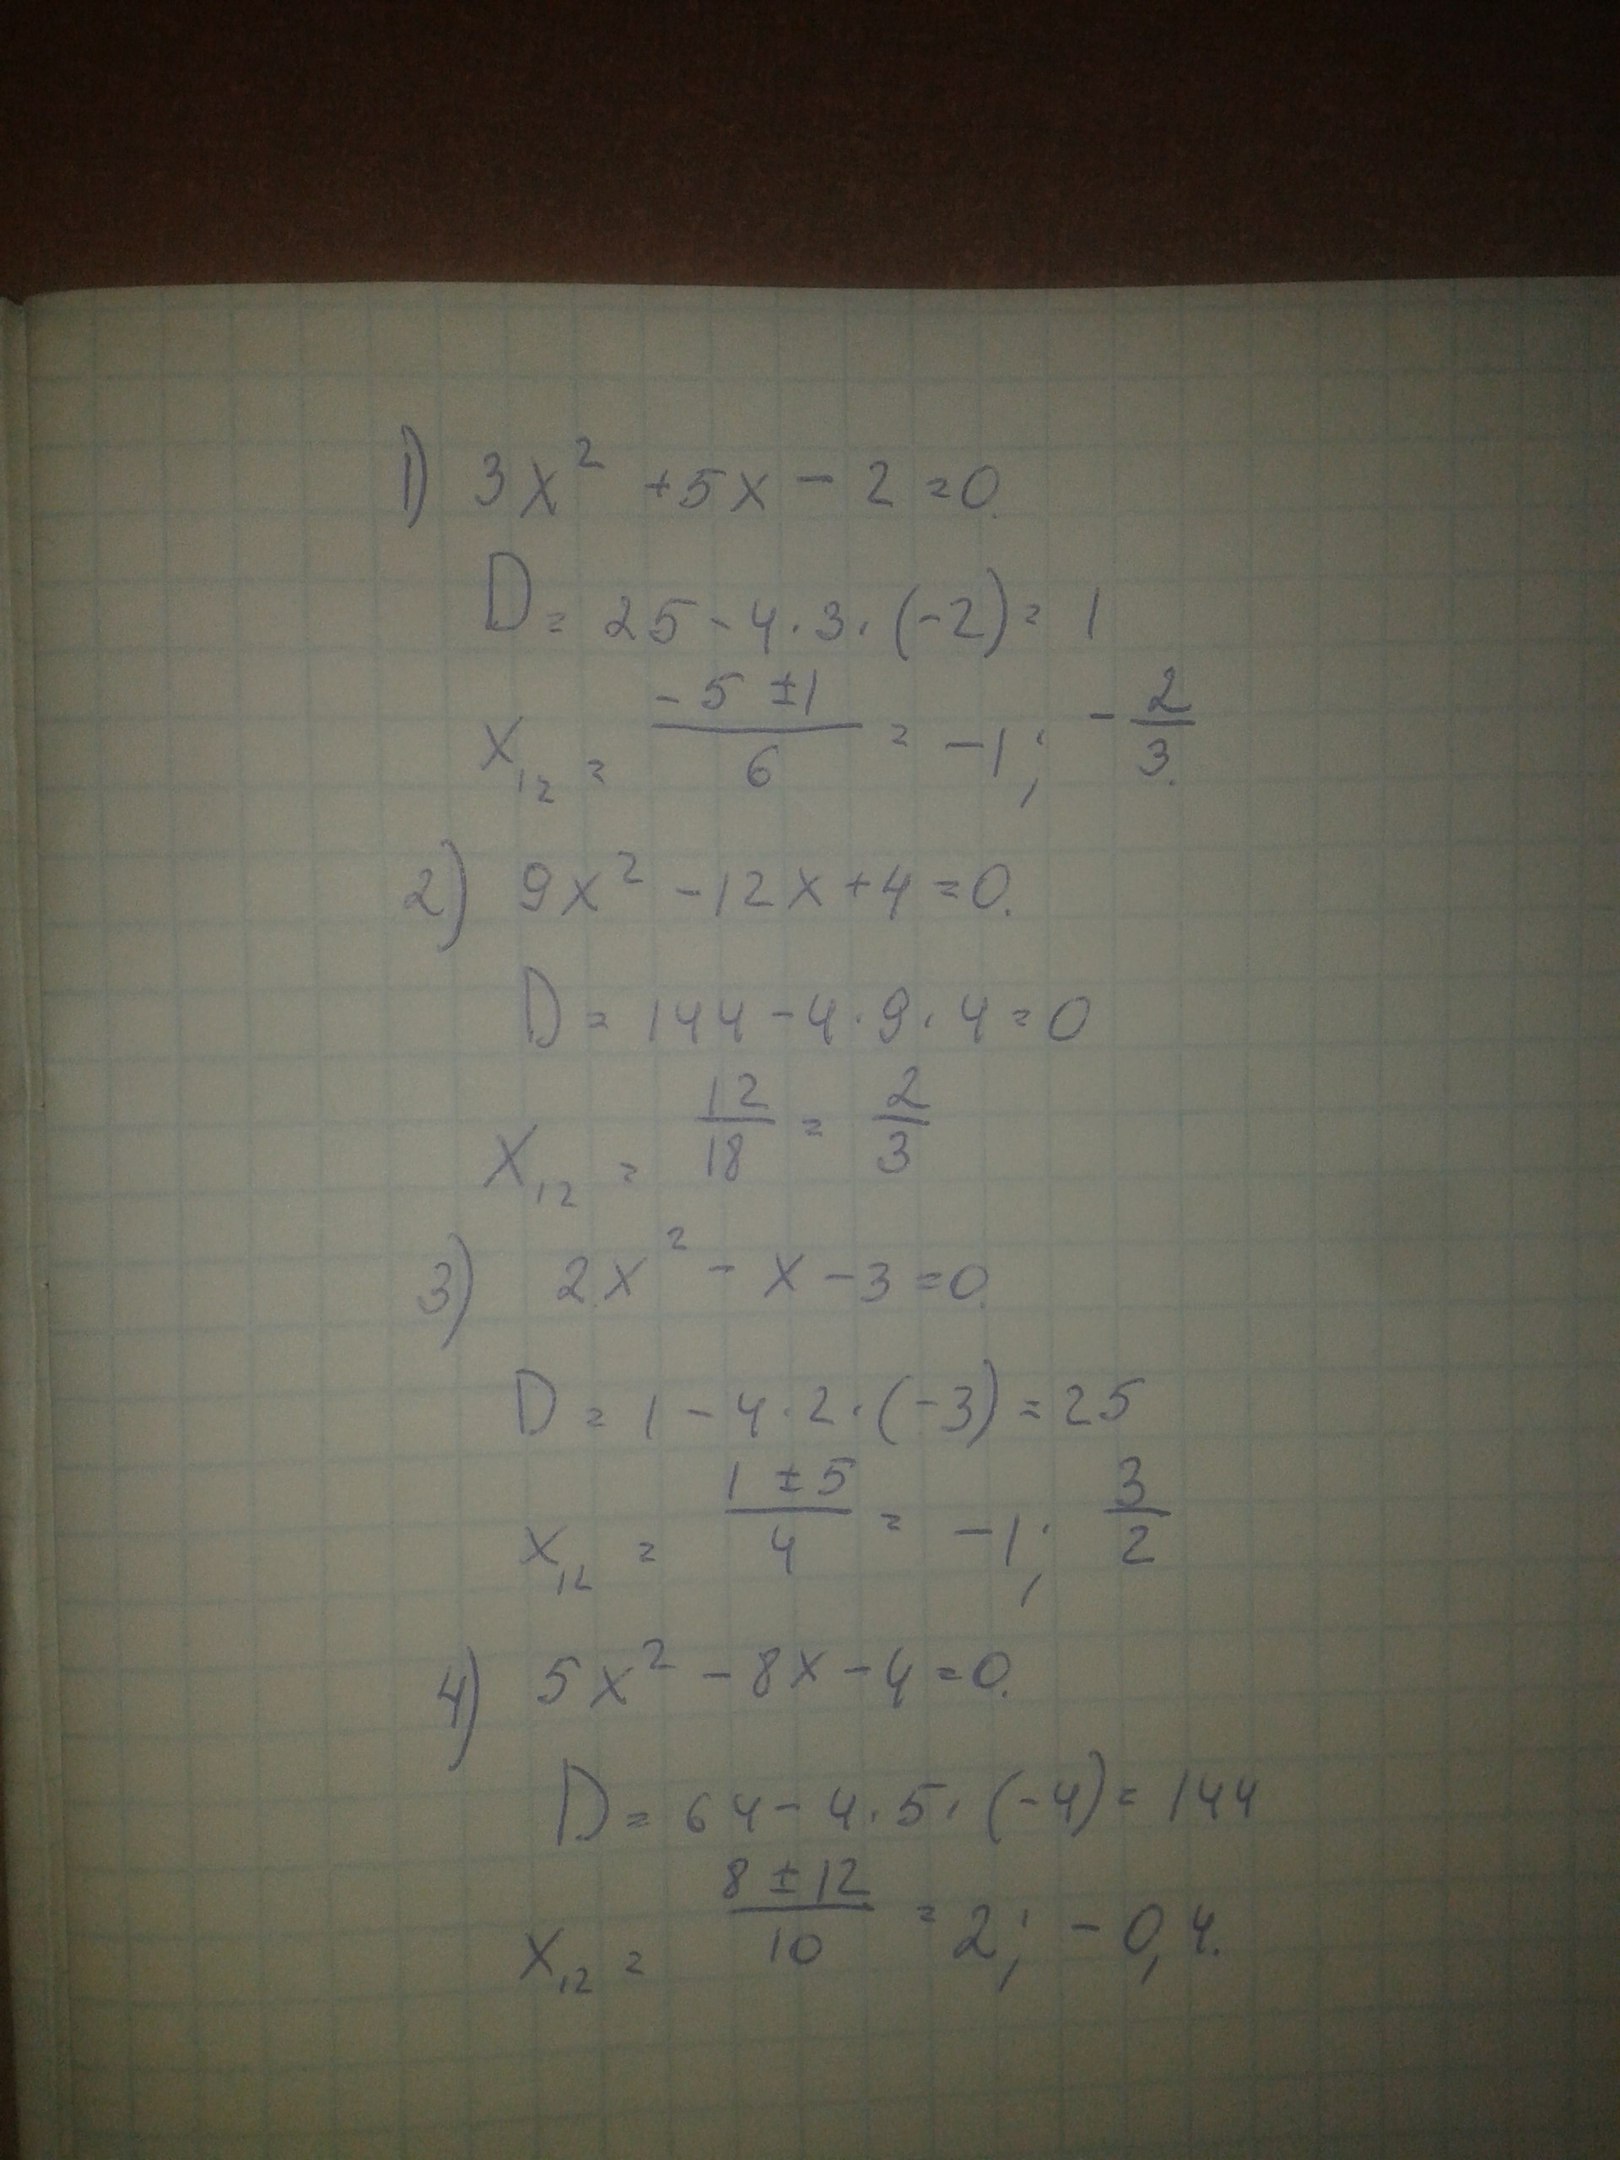 1) 3x² + 5x - 2 = 0.
D = 25 - 4 · 3 · (-2) = 1
x₁₂ = (-5 ± 1)/6 = -1; -2/3.
2) 9x² - 12x + 4 = 0.
D = 144 - 4 · 9 · 4 = 0
x₁₂ = 12/18 = 2/3
3) 2x² - x - 3 = 0.
D = 1 - 4 · 2 · (-3) = 25
x₁₂ = (1 ± 5)/4 = -1; 3/2
4) 5x² - 8x - 4 = 0.
D = 64 - 4 · 5 · (-4) = 144
x₁₂ = (8 ± 12)/10 = 2; -0,4.